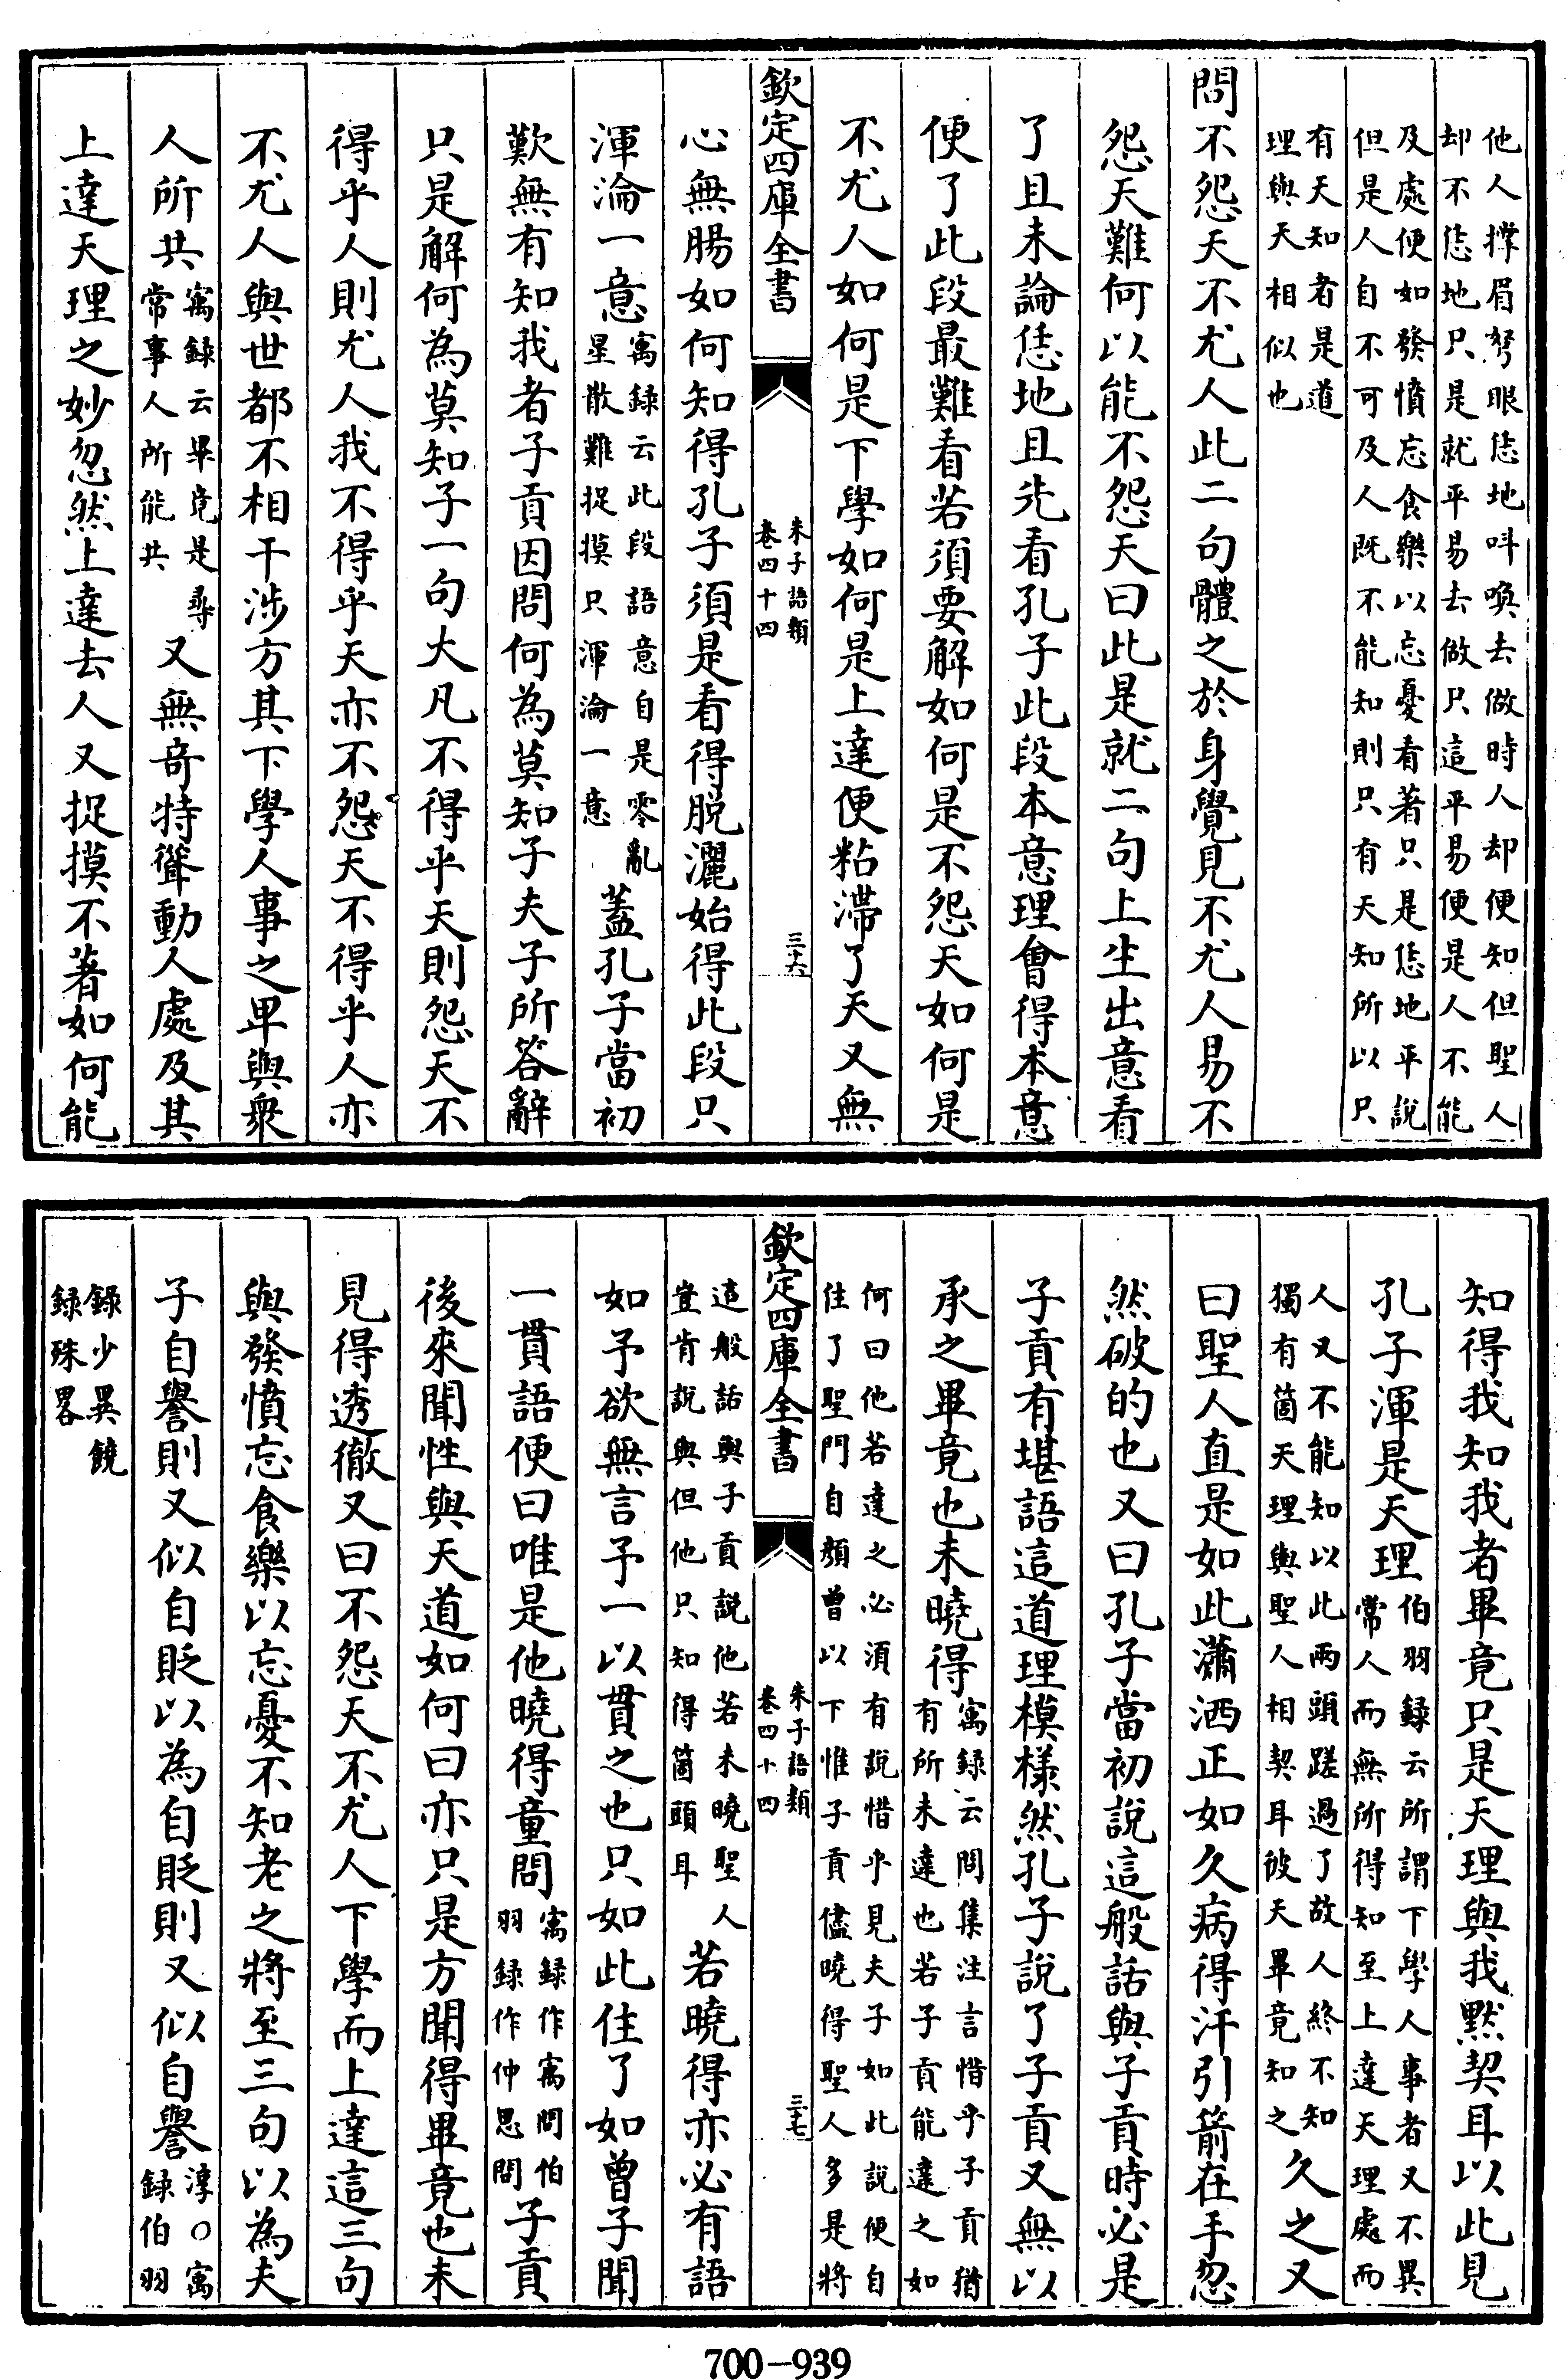 他人撑眉努眼恁地呌喚去做時人却便知但聖人
却不恁地只是就平易去做只這平易便是人不能
及處便如發憤忘食樂以忘憂看著只是恁地平說
但是人自不可及人既不能知則只有天知所以只
有天知者是道
理與天相似也
問不怨天不尤人此二句體之於身覺見不尤人易不
怨天難何以能不怨天曰此是就二句上生出意看
了且未論恁地且先看孔子此段本意理會得本意
便了此段最難看若須要解如何是不怨天如何是
不尤人如何是下學如何是上達便粘滯了天又無
欽定四庫全書
朱子語類
卷四十四
三十六
心無腸如何知得孔子須是看得脱灑始得此段只
渾淪一意寓録云此段語意自是零亂
星散難捉摸只渾淪一意蓋孔子當初
歎無有知我者子貢因問何為莫知子夫子所答辭
只是解何為莫知子一句大凡不得乎天則怨天不
得乎人則尤人我不得乎天亦不怨天不得乎人亦
不尤人與世都不相干涉方其下學人事之卑與衆
人所共寓録云畢竟是尋
常事人所能共又無奇特聳動人處及其
上達天理之妙忽然上達去人又捉摸不著如何能
知得我知我者畢竟只是天理與我默契耳以此見
孔子渾是天理伯羽録云所謂下學人事者又不異
常人而無所得知至上達天理處而
人又不能知以此兩頭蹉過了故人終不知
獨有箇天理與聖人相契耳彼天畢竟知之久之又
曰聖人直是如此瀟洒正如久病得汗引箭在手忽
然破的也又曰孔子當初說這般話與子貢時必是
子貢有堪語這道理模樣然孔子說了子貢又無以
承之畢竟也未曉得寓録云問集注言惜乎子貢猶
有所未達也若子貢能達之如
何曰他若達之必須有說惜乎見夫子如此說便自
住了聖門自顏曾以下惟子貢儘曉得聖人多是將
欽定四庫全書
朱子語類
卷四十四
三十七
這般話與子貢説他若未曉聖人
豈肯說與但他只知得箇頭耳若曉得亦必有語
如予欲無言予一以貫之也只如此住了如曾子聞
一貫語便曰唯是他曉得童問寓録作寓問伯
羽録作仲思問子貢
後來聞性與天道如何曰亦只是方聞得畢竟也未
見得透徹又曰不怨天不尤人下學而上達這三句
與發憤忘食樂以忘憂不知老之將至三句以為夫
子自譽則又似自貶以為自貶則又似自譽淳○寓
録伯羽
録少異饒
録殊畧
700-939